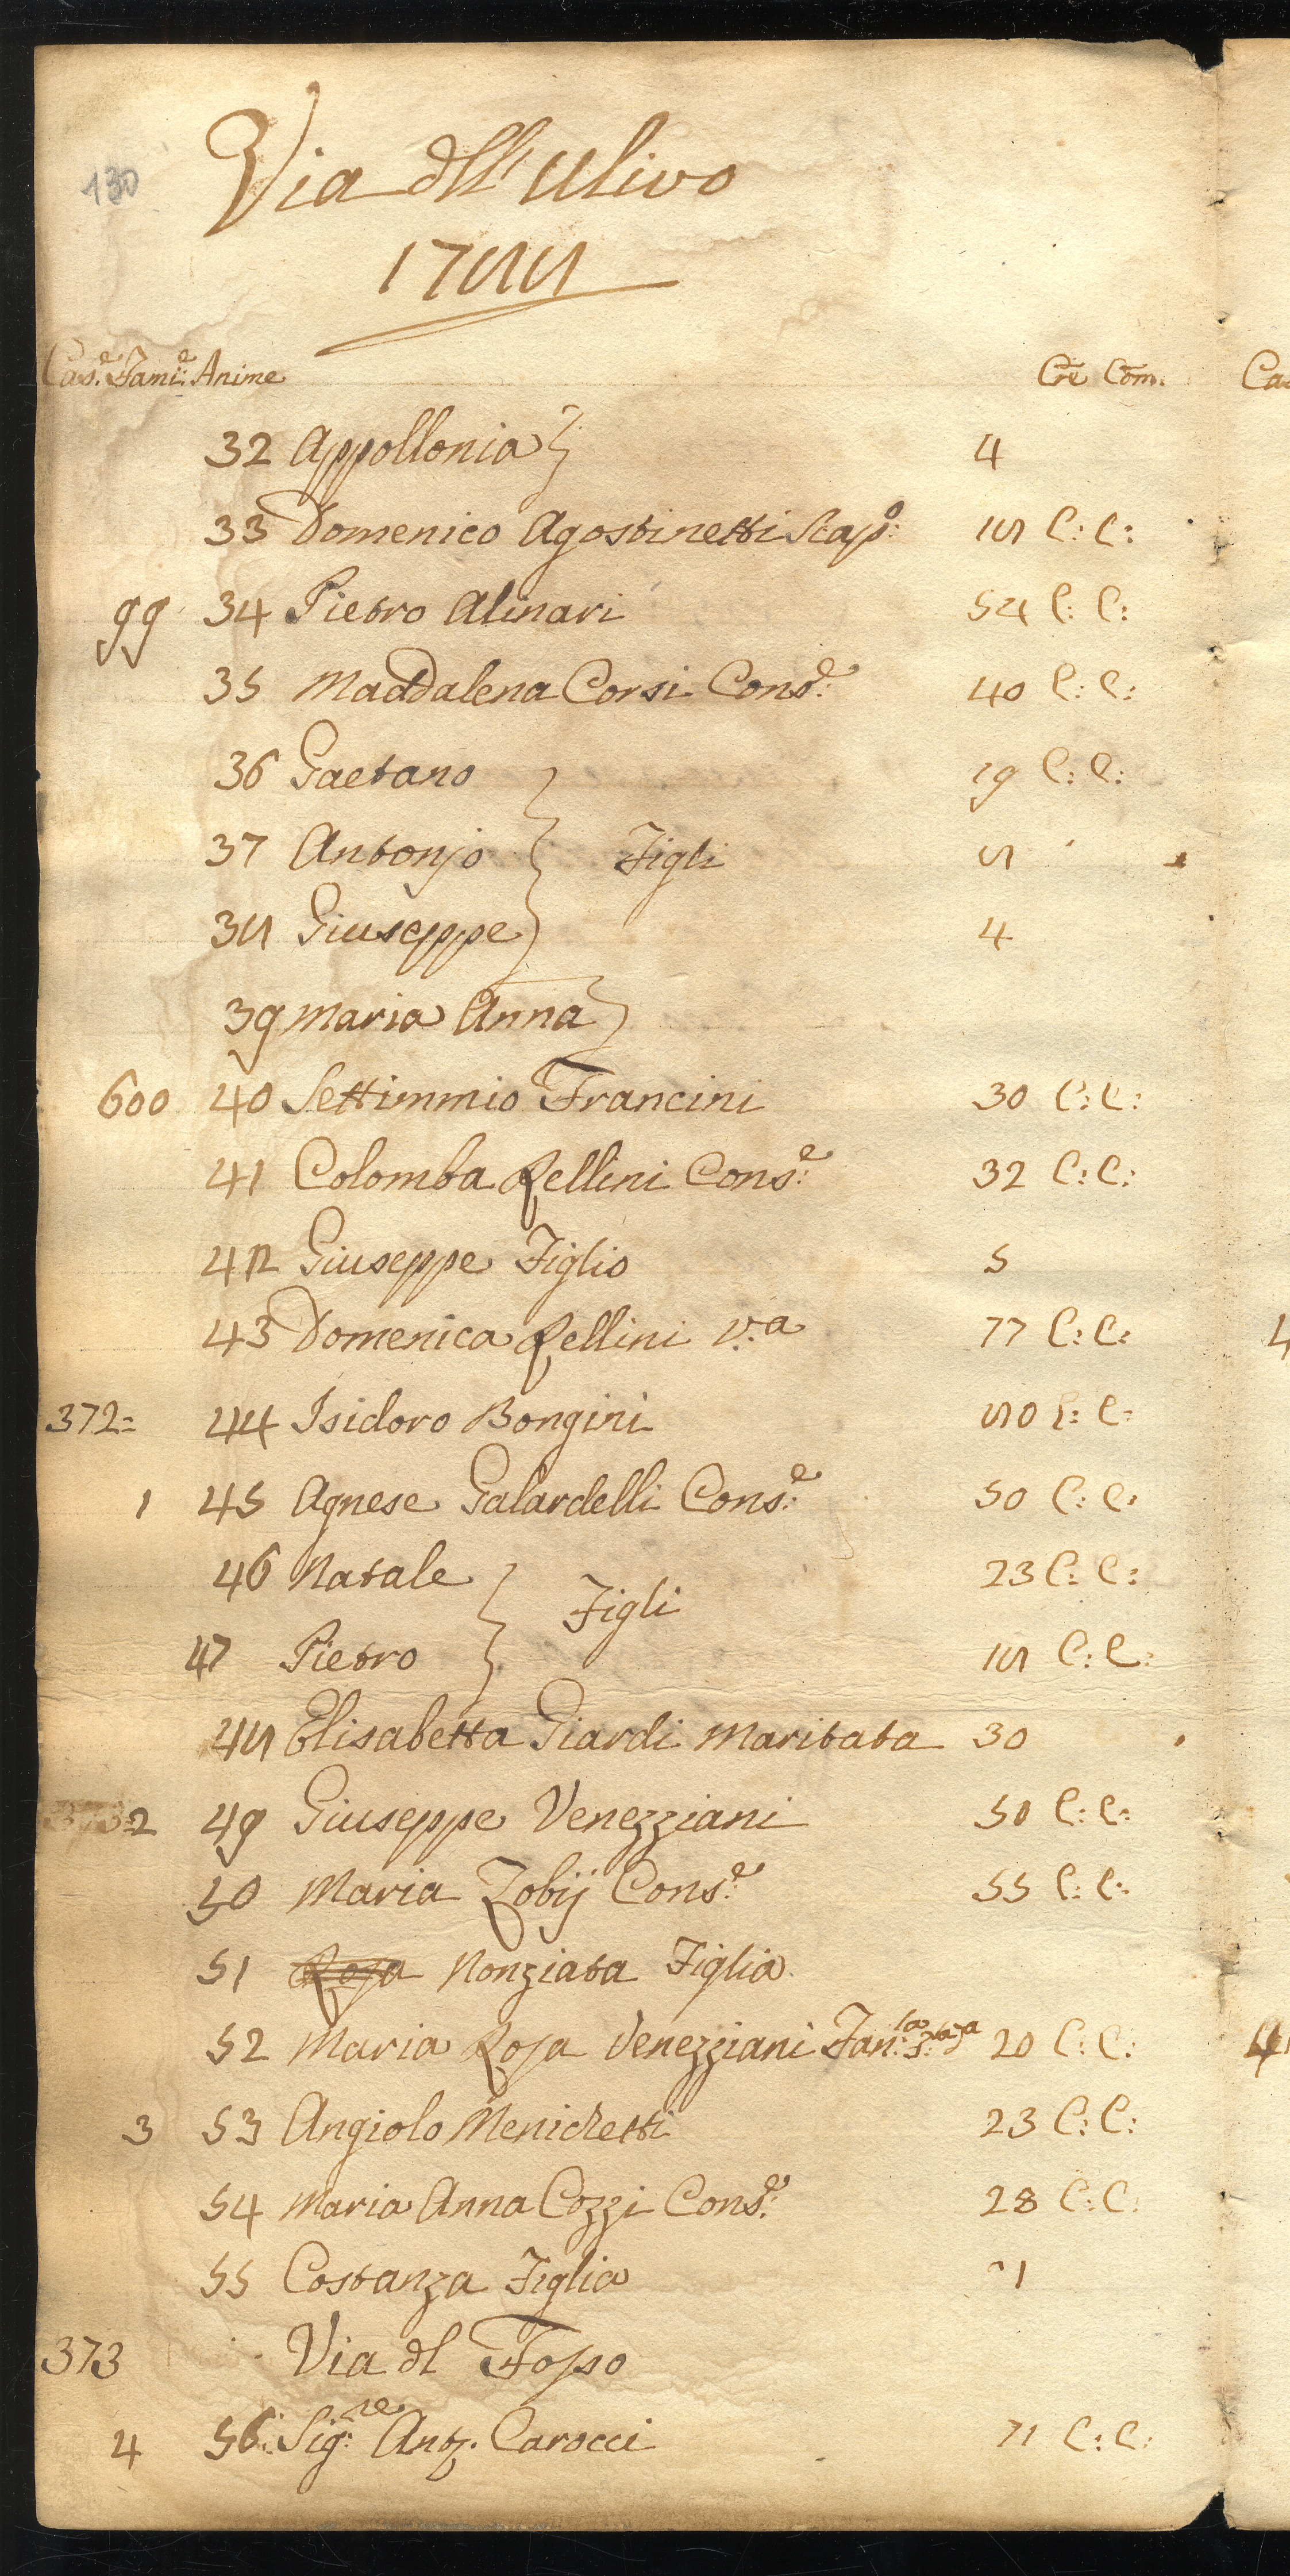 130
Via dll' Ulivo
1788
Cas:e Fami:e Anime Cre Com.
32 Appollonia 4
33 Domenico Agostinetti Scap:o 18 C: C:
99 34 Pietro Alinari 54 C: C:
35 Maddalena Corsi Cons:e 40 C: C:
36 Gaetano 19 C: C:
37 Antonjo Figli 8
38 Giuseppe 4
39 Maria Anna
600 40 Settimmio Francini 30 C: C:
41 Colomba Rellini Cons:e 32 C: C:
42 Giuseppe Figlio 5
43 Domenica Rellini V:a 77 C: C:
372= 44 Isidoro Bongini 80 C: C:
1 45 Agnese Galardelli Cons:e 50 C: C:
46 Natale 23 C: C:
Figli
47 Pietro 18 C: C:
48 Elisabetta Giardi Maritata 30
2 49 Giuseppe Venezziani 50 C: C:
50 Maria Zobij Cons:e 55 C: C:
51 Rosa Nonziata Figlia
52 Maria Rosa Venezziani Fan:la 20 C: C:
3 53 Angiolo Menichetti 23 C: C:
54 Maria Anna Cozzi Cons:e 28 C: C:
55 Costanza Figlia 1
373 Via dl Fosso
4 56 Sig:re Ant. Carocci 71 C: C: